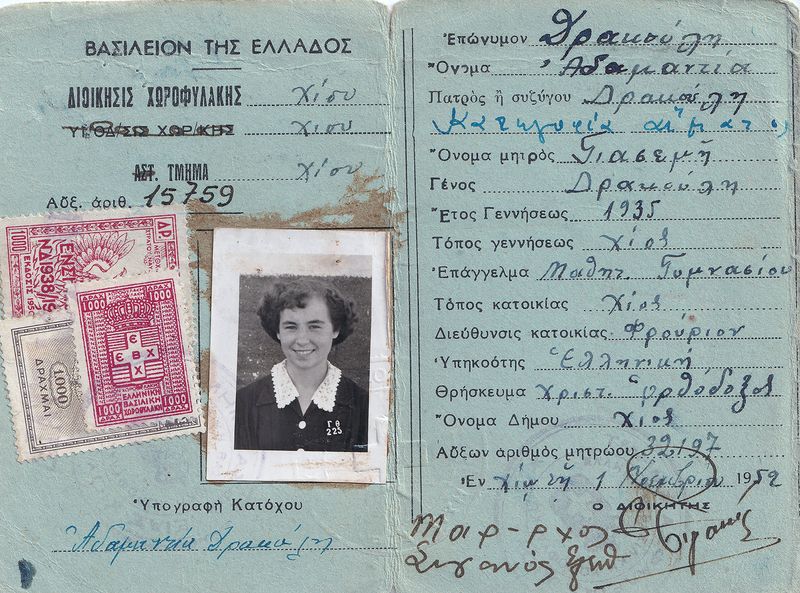 ΒΑΣΙΛΕΙΟΝ ΤΗΣ ΕΛΛΑΔΟΣ
ΔΙΟΙΚΗΣΙΣ ΧΩΡΟΦΥΛΑΚΗΣ Χίου
Χίου
ΑΣΤ. ΤΜΗΜΑ Χίου
Αὔξ. ἀριθ. 15759
1000 ΔΡ
1000 1000
ΕΒΧ
ΕΛΛΗΝΙΚΗ
ΒΑΣΙΛΙΚΗ
ΧΩΡΟΦΥΛΑΚΗ
1000 1000
1.000
ΔΡΑΧΜΑΙ
Γ Θ
225
Ὑπογραφὴ Κατόχου
Ἀδαμαντία Δρακούλη
Ἐπώνυμον Δρακούλη
Ὄνομα Ἀδαμαντία
Πατρὸς ἢ συζύγου Δρακούλη
Κατηγορία αἵματος
Ὄνομα μητρὸς Γιασεμῆ
Γένος Δρακούλη
Ἔτος Γεννήσεως 1935
Τόπος γεννήσεως Χίος
Ἐπάγγελμα Μαθητ. Γυμνασίου
Τόπος κατοικίας Χίος
Διεύθυνσις κατοικίας Φρούριον
Ὑπηκοότης Ἑλληνική
Θρήσκευμα Χριστ. Ὀρθόδοξος
Ὄνομα Δήμου Χίος
Αὔξων ἀριθμὸς μητρώου 32197
Ἐν Χίῳ τῇ 1 1952
Ο ΔΙΟΙΚΗΤΗΣ